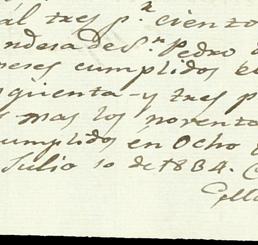 ál tres p.r ciento
ndesa de S.n Pedro
meses cumplidos e
quenta y tres p
s mas los noventa
umplidos en Ocho
Julio 10 de 1834. C